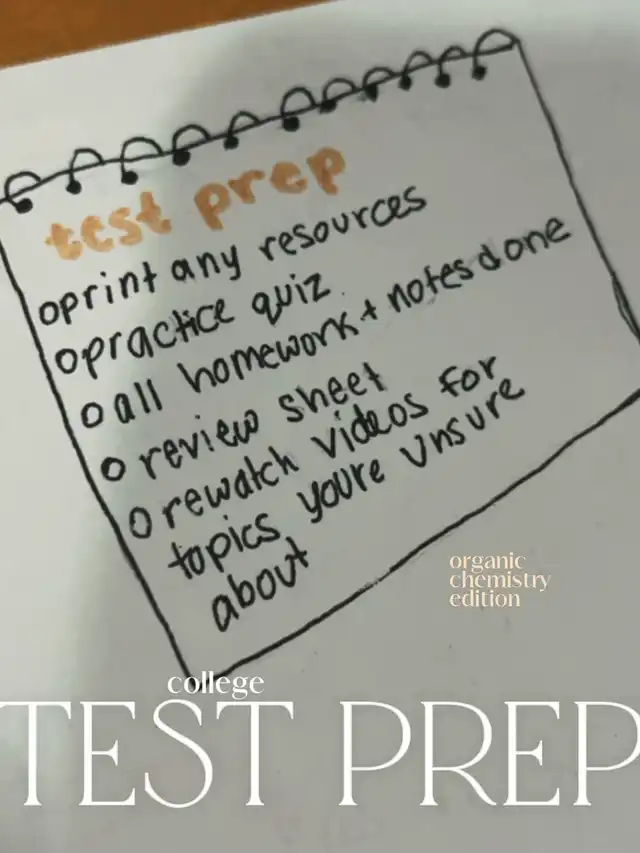 test prep
o print any resources
o practice quiz
o all homework + notes done
o review sheet
o rewatch videos for
topics youre unsure
about
organic
chemistry
edition
college
TEST PREP